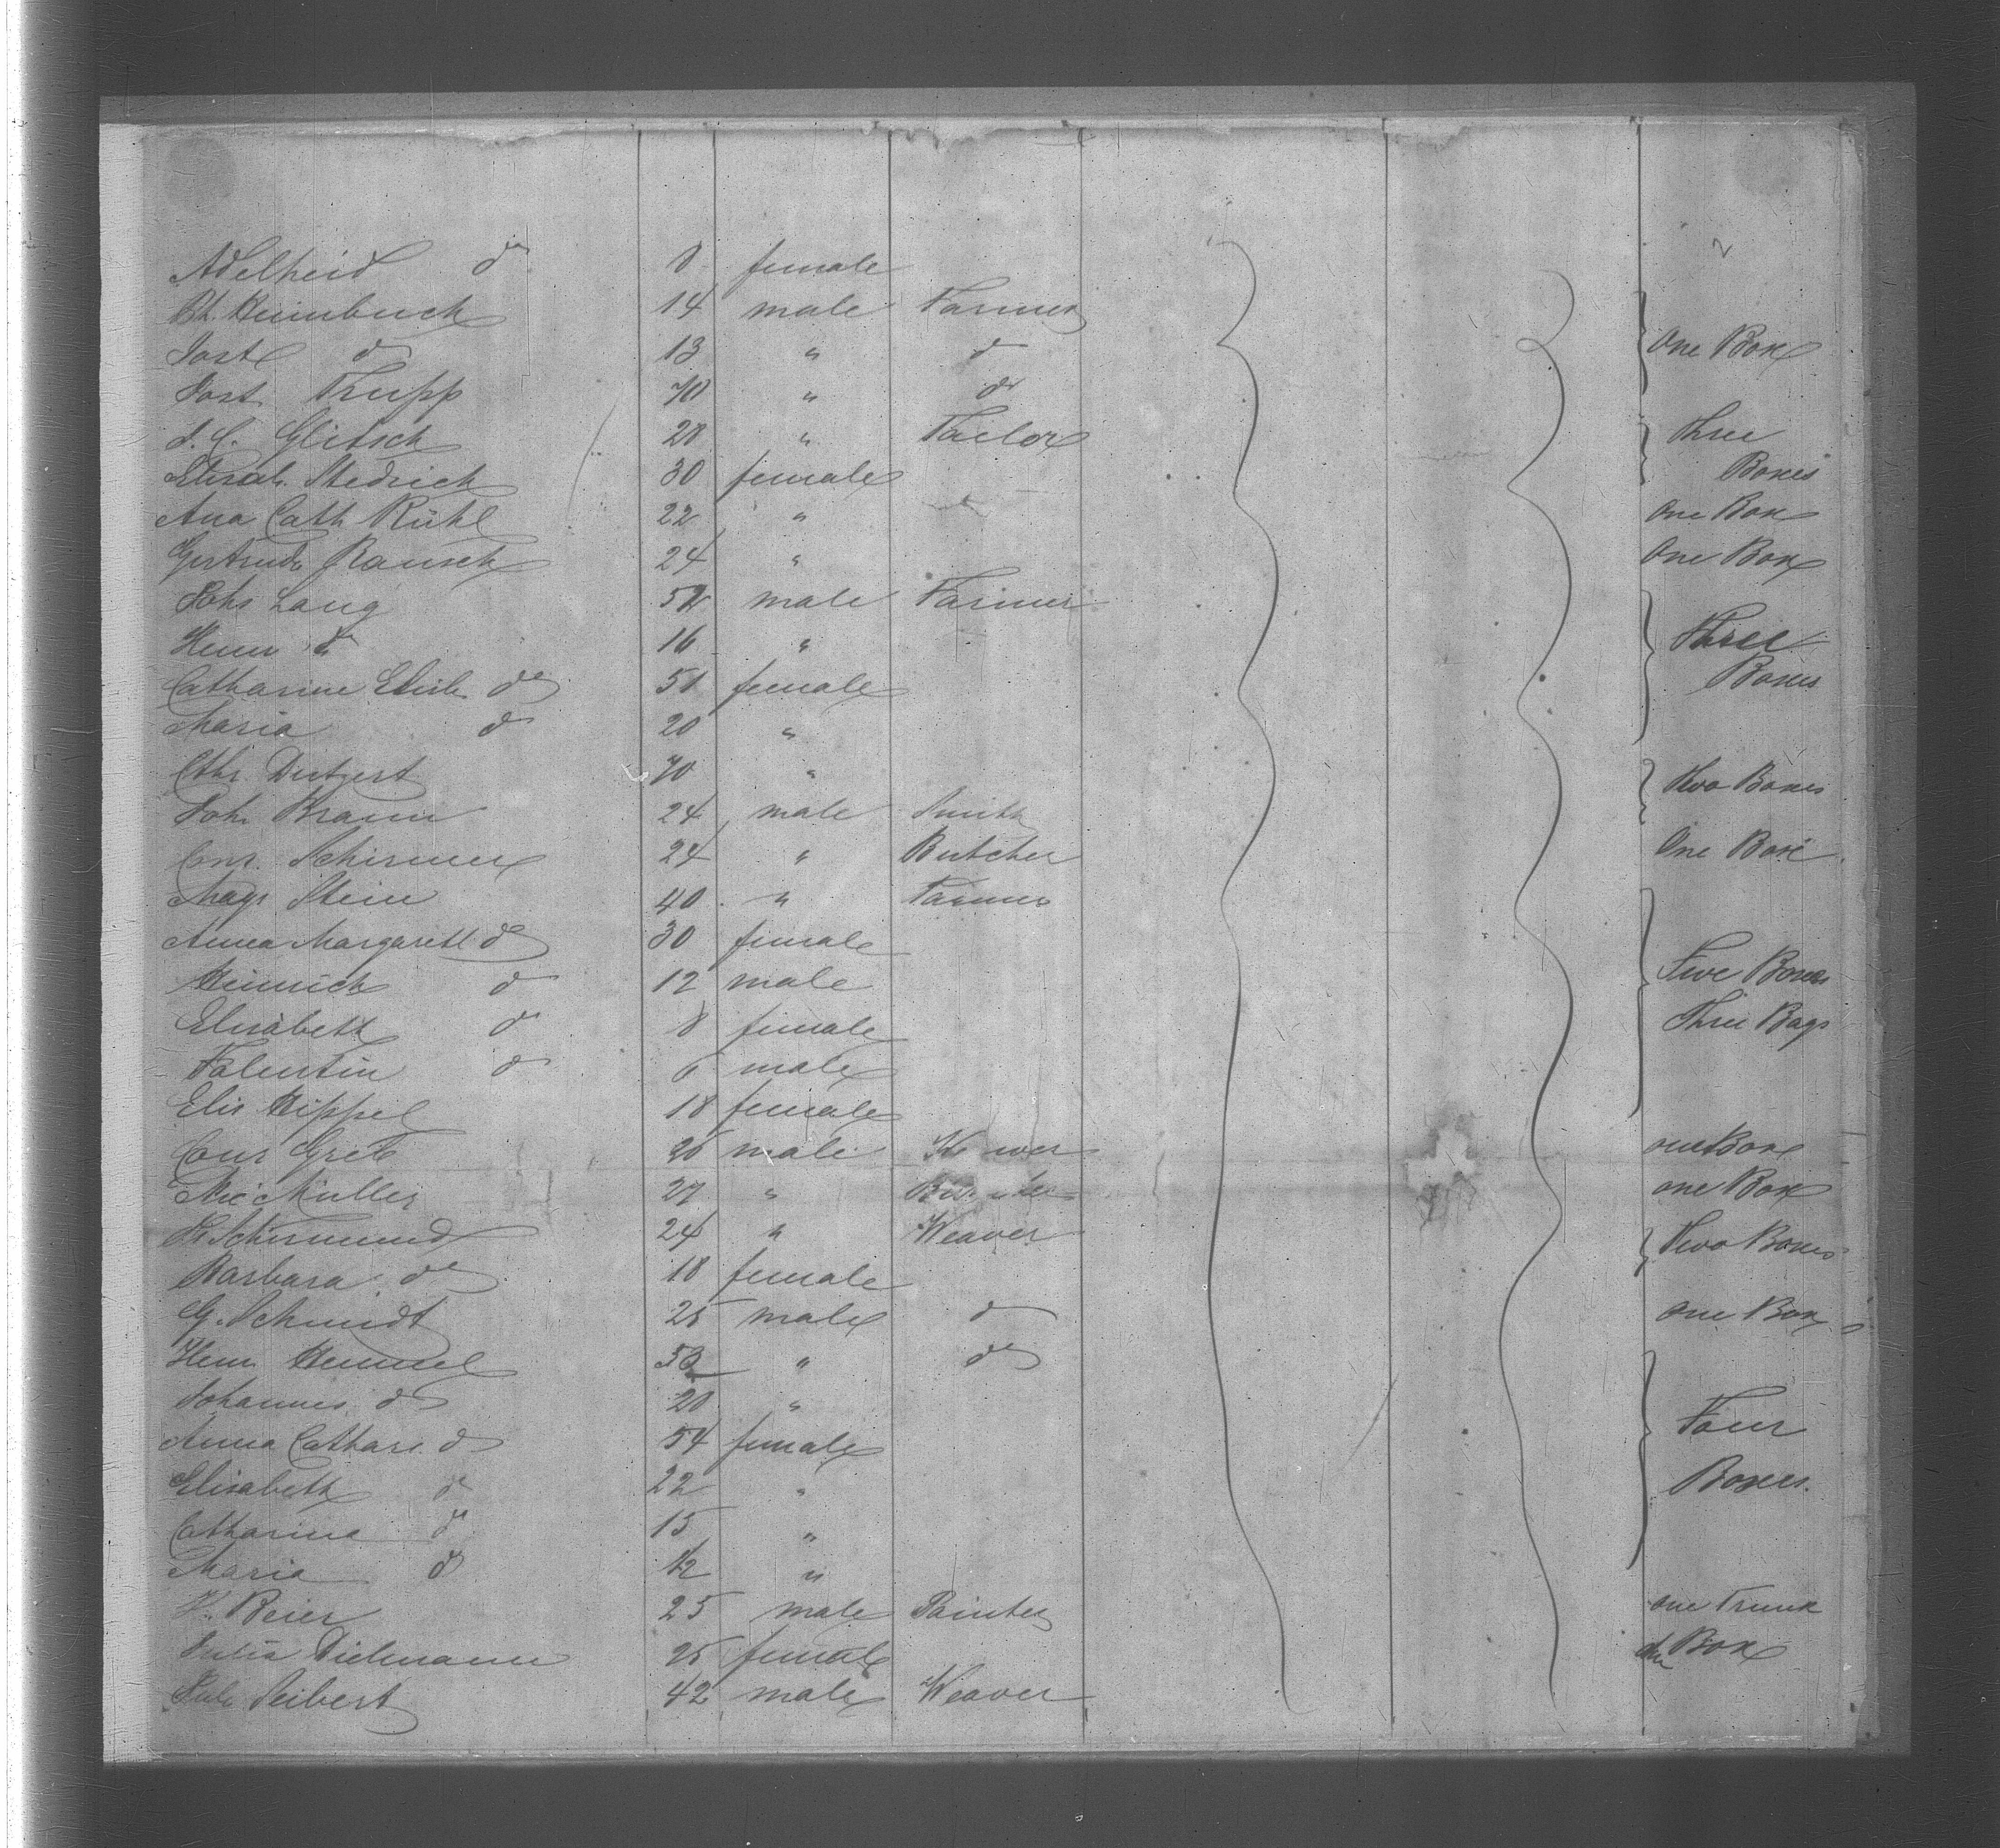 2
Adelheid do 8 female
Bh. Heimbuch 14 male Farmer
Jost do 13 " do One Box
Jost Trupp 40 " do
J. C. Glitsch 28 " Tailor Three
Elisab. Medrich 30 female Boxes
Ana Cath Rühl 22 " One Box
Gertrude Rausch 24 " One Box
Johs Lang 52 male Farmer
Henr do 16 " Three
Catharine Elisb do 51 female Boxes
Maria do 20 "
Cthr. 40 " Two Boxes
Joh. Braun 24 male Smith
Conr. Schirmer 24 " Butcher One Box
Magr Stein 40 " Farmer
Anna Margareth do 30 female
Heinrich do 12 male Five Boxes
Elisabeth do 8 female Three Bags
Valentin do 6 male
Elis Hippel 18 female
Conr Greb 26 male one Box
Nic Müller 27 " one Box
24 " Weaver Two Boxes
Barbara do 18 female
G. Schmidt 25 male do One Box
Henr Hensel 52 " do
Johannes do 20 "
Anna Cathar. do 54 female Four
Elisabeth do 22 " Boxes.
Catharina do 15 "
Maria do 12 "
Beier 25 male Painter one Trunk
Julia Dielmann 25 female One Box
Seibert 42 male Weaver